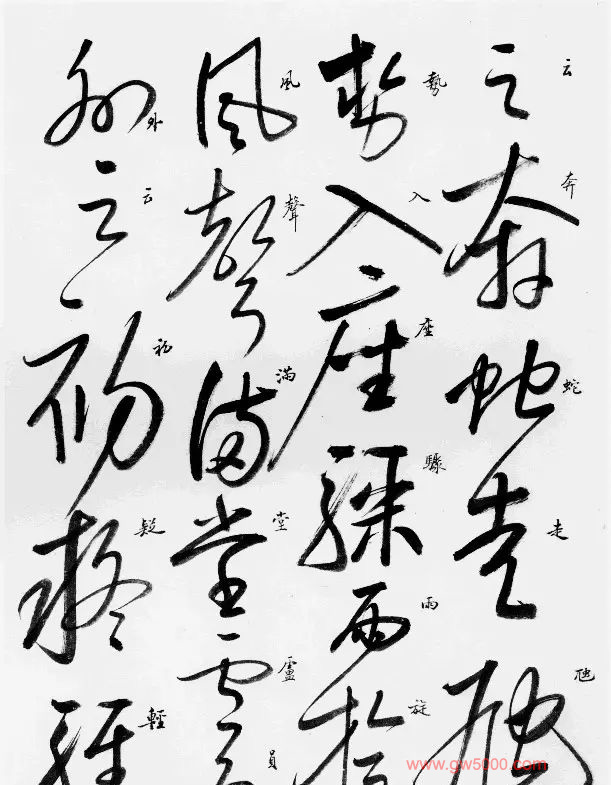 云奔蛇走虺
云奔蛇走虺
勢入座驟雨旋
勢入座驟雨旋
風聲滿堂盧員
風聲滿堂盧員
外云初疑輕
外云初疑輕
www.gw5000.com